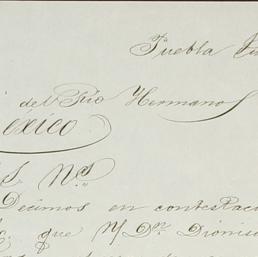 Puebla
del Rio Hermanos
México
S. N.s
Decimos en contestac
que N D.n Dionis